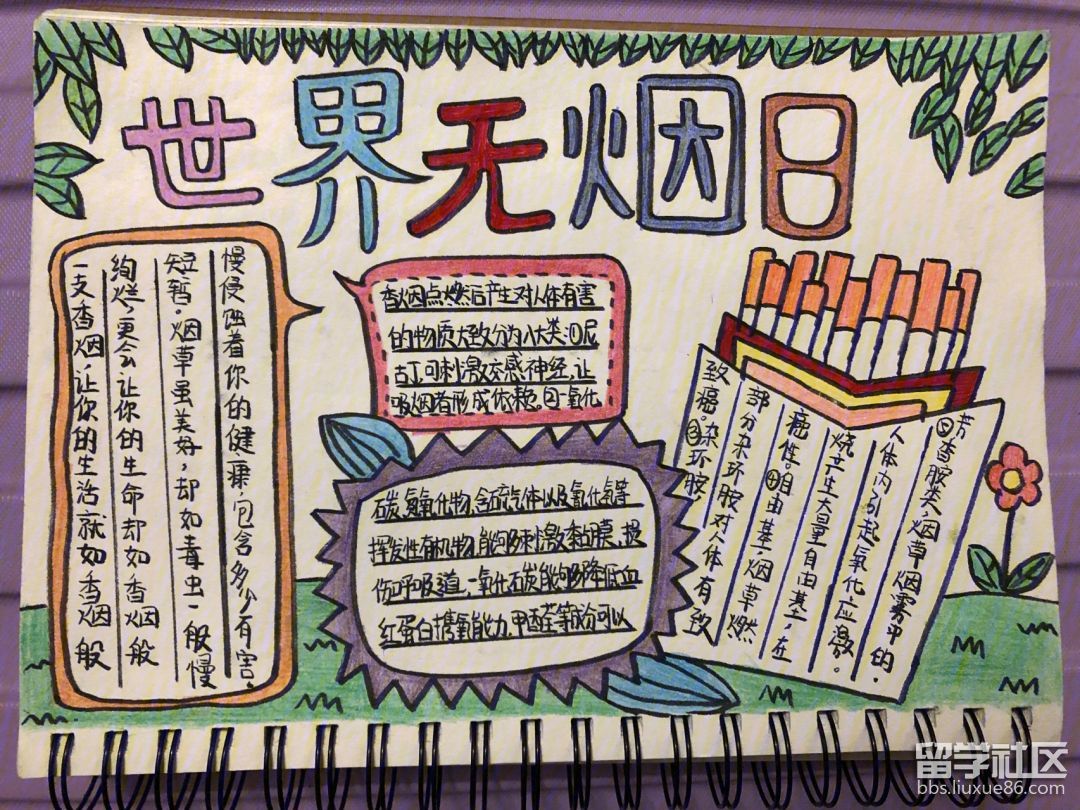 世界无烟日
一支香烟,让你的生活就如香烟般
绚烂,更会让你的生命却如香烟般
短暂。烟草虽美好,却如毒虫一般慢
慢侵蚀着你的健康,包含多少有害。
香烟点燃后产生对人体有害
的物质大致分为八大类:①尼
古丁,可刺激交感神经,让
吸烟者形成依赖。②一氧化
碳、氮氧化物、含硫气体以及氰化氢等
挥发性有机物,能够刺激黏膜,损
伤呼吸道,一氧化碳能够降低血
红蛋白携氧能力,甲醛苯等成分可以
致癌。③杂环胺
部分杂环胺对人体有致
癌性。④自由基:烟草燃
烧产生大量自由基,在
人体内引起氧化应激。
⑤芳香胺类:烟草烟雾中的
留学社区
bbs.liuxue86.com